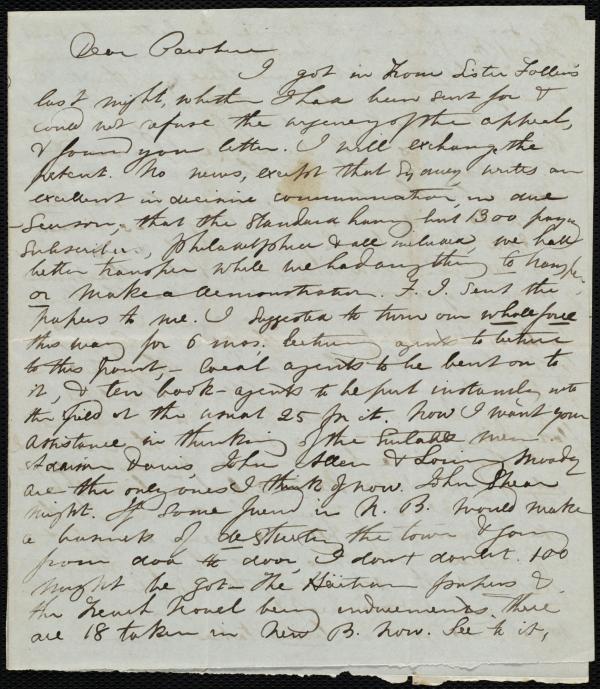 Dear Caroline
I got in from Sister Follen's
last night, whither I had been sent for &
could not refuse the urgency of the appeal,
& found your letter. I will exchange the
No news, except that Sydney writes an
excellent in decisive communication, in due
season, - that the Standard having but 1300 paying
subscribers, Philadelphia & all included, we had
better transfer while we had any thing to transfer
or make a demonstration. F. J. sent the
papers to me. I suggested to turn our whole force
this way for 6 mos; lecturing agents to lecture
to this point, - local agents to be bent on to
it, & ten book-agents to be put instantly into
the field at the usual 25 pr ct. Now I want your
assistance in thinking of the suitable men.
Adam Davis, John Allen & Loring Moody
are the only ones I think of now. John
might. If some friend in N. B. would make
a business of the town & going
from door to door, I don't doubt 100
might be got - the Haitian papers &
the French travel being inducements. there
are 18 taken in New B. now. See to it,